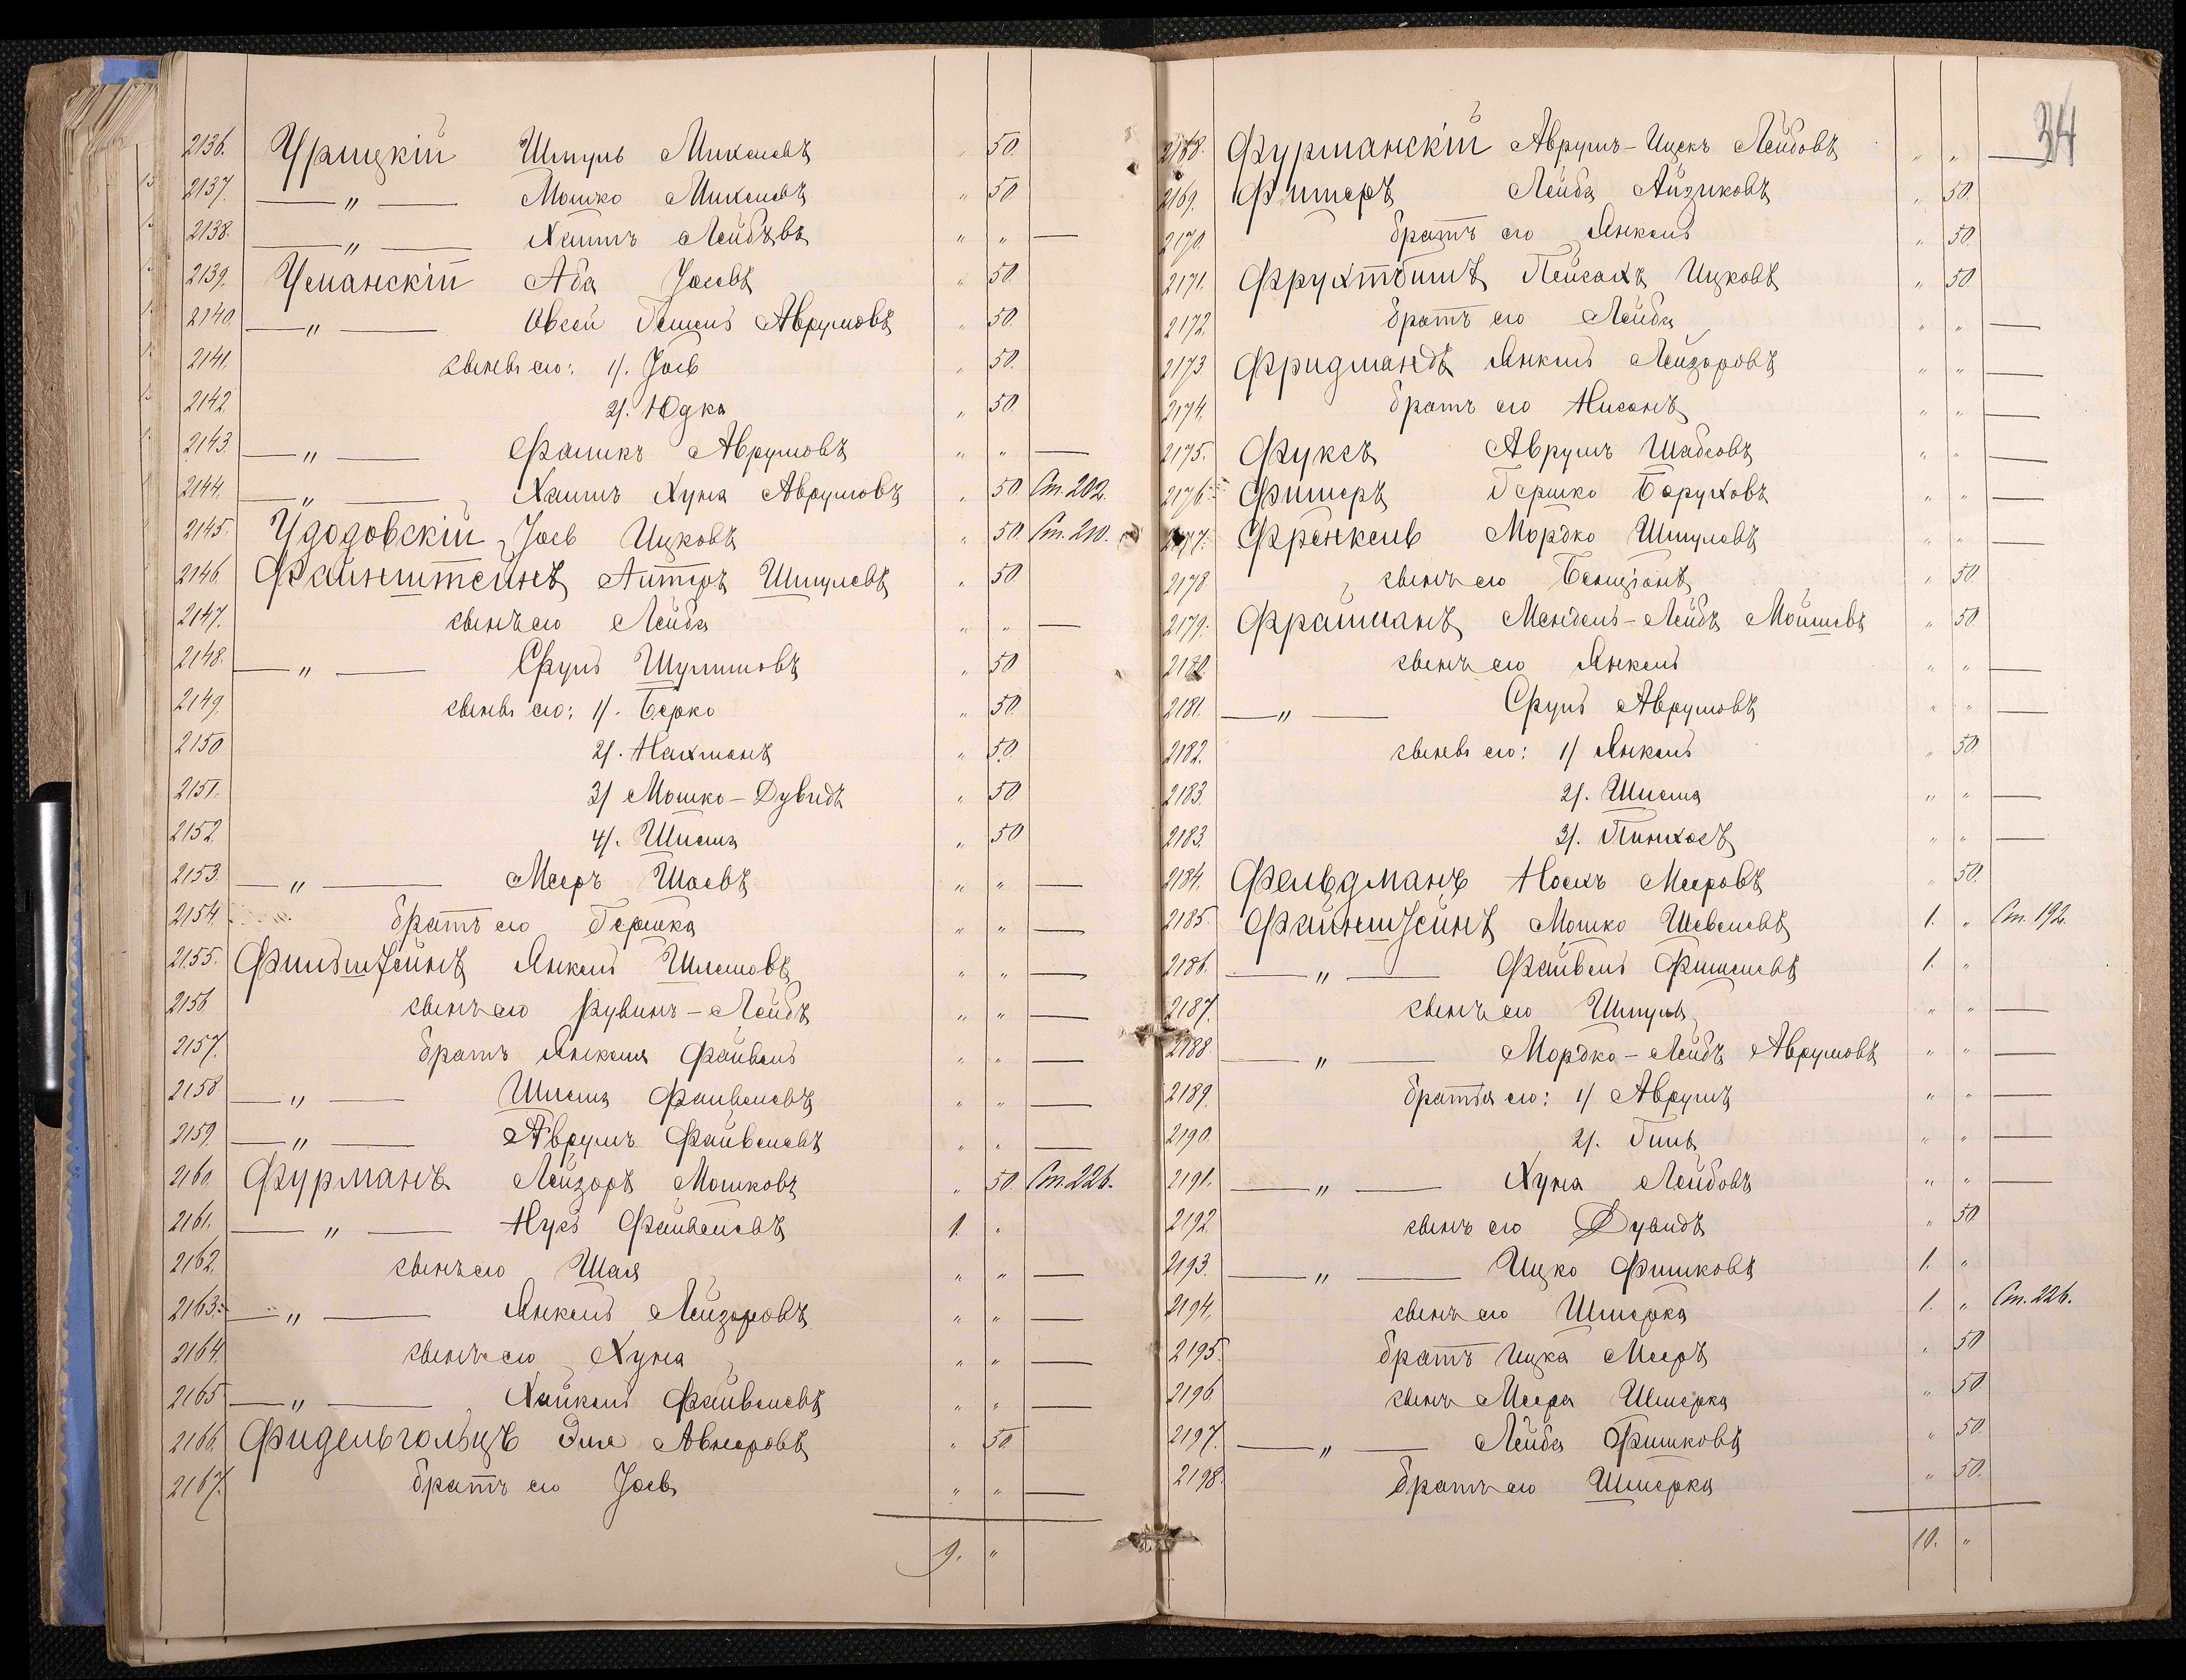 2136. Урицкій Шмуль Михелевъ " 50.
2137. — " — Мошко Михелевъ " 50
2138. — " — Хаимъ Лейбовъ " " —
2139. Уманскій Аба Іосевъ " 50.
2140. — " — Овсей Гешель Аврумовъ " 50.
2141. сыновья его: 1/. Іось " 50.
2142. 2/. Юдка " 50.
2143. — " — Фаликъ Аврумовъ " " —
2144. — " — Хаимъ Хуна Аврумовъ " 50. Ст. 202.
2145. Удодовскій Іось Ицковъ " 50. Ст. 210.
2146. Файнштейнъ Алтеръ Шмулевъ " 50
2147. сынъ его Лейба " " —
2148. — " — Сруль Шулимовъ " 50
2149. сыновья его: 1/. Берко " 50.
2150 2/. Нахманъ " 50.
2151. 3/ Мошко-Дувидъ " 50
2152. 4/. Шлема " 50
2153. — " — Мееръ Шаевъ " " —
2154. братъ его Гершка " " —
2155. Финштейнъ Янкель Шлемовъ " " —
2156. сынъ его Рувинъ-Лейбъ " " —
2157. братъ Янкеля Файвель " " —
2158 — " — Шлема Файвелевъ " " —
2159. — " — Аврумъ Файвелевъ " " —
2160. Фурманъ Лейзоръ Мошковъ " 50. Ст. 226.
2161. — " — Нухъ Файвелевъ 1. "
2162. сынъ его Шая " " —
2163. — " — Янкель Лейзоровъ " " —
2164. сынъ его Хуна " " —
2165 — " — Хайкель Файвелевъ " " —
2166. Фидельгольцъ Эля Авмеровъ " 50.
2167. братъ его Іось " " —
9. "
34
2168. Фурманскій Аврумъ-Ицекъ Лейбовъ " " —
2169. Фишеръ Лейба Айзиковъ " 50.
2170. братъ его Янкель " 50.
2171. Фрухтбимъ Пейсахъ Ицковъ " 50
2172. братъ его Лейба " " —
2173 Фридмандъ Янкель Лейзоровъ " " —
2174. братъ его Нисонъ " " —
2175. Фуксъ Аврумъ Шабсовъ " " —
2176. Фишеръ Гершко Боруховъ " " —
2177. Френкель Мордко Шмулевъ " " —
2178 сынъ его Бенціонъ " 50.
2179. Файманъ Мендель-Лейбъ Мойшевъ " 50
2180 сынъ его Янкель " " —
2181. — " — Сруль Аврумовъ " " —
2182. сыновья его: 1/ Янкель " 50
2183. 2/. Шлема " " —
2183. 3/. Пинхосъ " " —
2184. Фельдманъ Носехъ Мееровъ " 50.
2185. Файнштейнъ Мошко Шевелевъ 1. " Ст. 192.
2186. — " — Файвель Фишелевъ 1. "
2187. сынъ его Шмуль " " —
2188. — " — Мордко-Лейбъ Аврумовъ " " —
2189. братья его: 1/ Аврумъ " " —
2190. 2/. Гиль " " —
2191. — " — Хуна Лейбовъ " " —
2192. сынъ его Дувидъ " 50.
2193. — " — Ицко Фишковъ 1. "
2194. сынъ его Шмерка 1. " Ст. 226.
2195. братъ Ицка Мееръ " 50
2196 сынъ Меера Шмерка " 50.
2197. — " — Лейба Фишковъ " 50.
2198. братъ его Шмерка " 50.
10. "